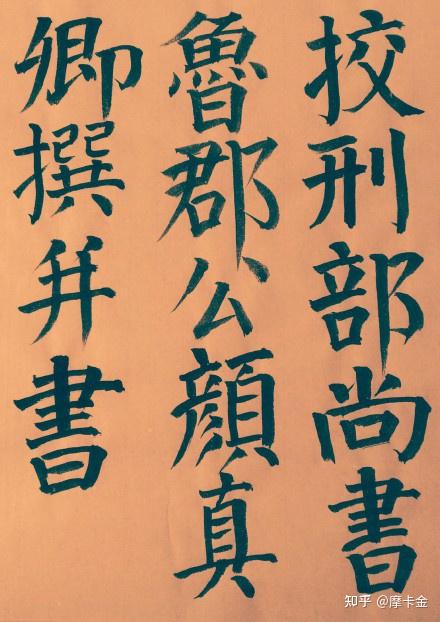 挍刑部尚書
魯郡公顔真
卿撰并書
知乎 @摩卡金